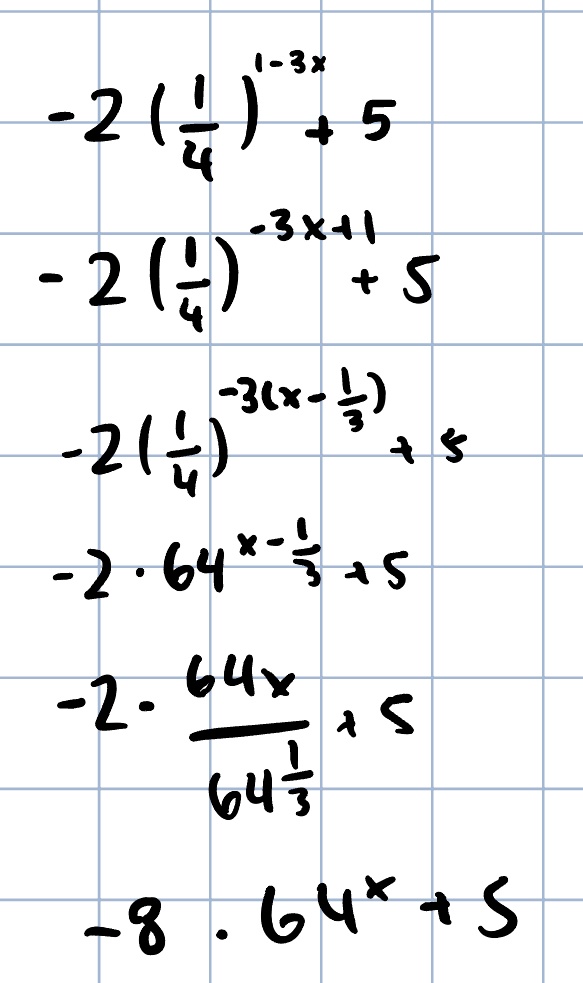 -2(1/4)^(1-3x) + 5
-2(1/4)^(-3x+1) + 5
-2(1/4)^(-3(x-1/3)) + 5
-2·64^(x-1/3) + 5
-2· 64x/64^(1/3) + 5
-8 . 64^x + 5